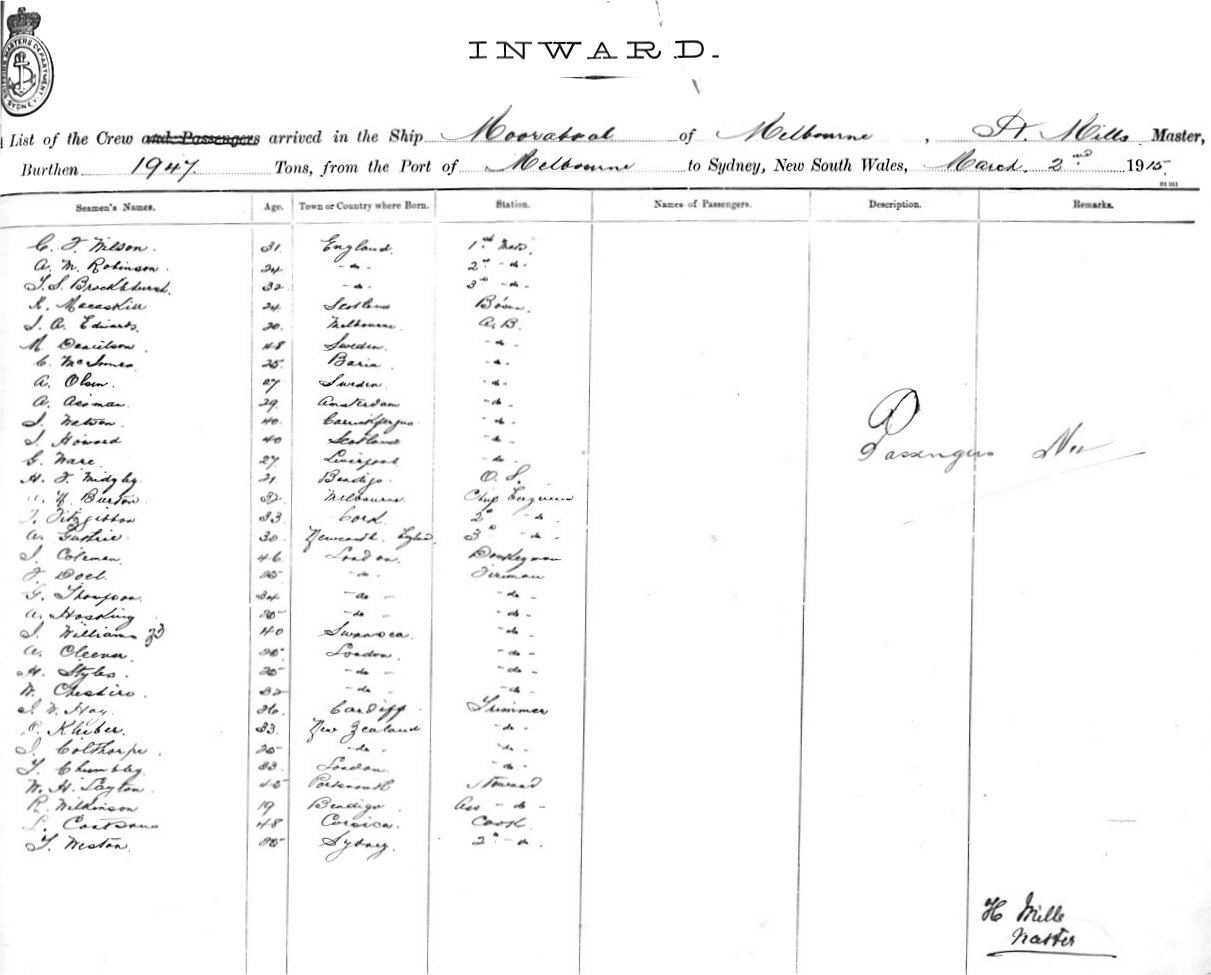 INWARD.
List of the Crew and Passengers arrived in the Ship Moorabool of Melbourne, H. Mills Master,
Burthen 1947 Tons, from the Port of Melbourne to Sydney, New South Wales, March 2nd 1915
Seamen's Names. Age. Town or Country where Born. Station. Names of Passengers. Description. Remarks.
C. F. Wilson. 31 England 1st Mate
A. M. Robinson. 24 -do- 2nd -do-
T. S. Brockhurst. 32 -do- 3rd -do-
K. Macaskill 24 Scotland Bosun
J. A. Edwards 20 Melbourne A.B.
M Danielson 48 Sweden -do-
C. McInnes 25 -do-
A. Olsen. 27 Sweden -do-
A. Assman 29 Amsterdam -do-
J. Watson 40 Carrickfergus -do-
J. Howard 40 Scotland -do-
G. Ware. 27 Liverpool -do-
H. F. Midgley 21 Bendigo O. S.
Burton 32 Melbourne Chief Engineer
Fitzgibbon 33 Cork 2nd -do-
A. Guthrie 30 Newcastle 3rd -do-
J. Coleman 46 London Donkeyman
F. Doel 25 -do- Fireman
Passengers Nil
G. Thompson 34 -do- -do-
A. Hosking 25 -do- -do-
J. Williams 40 Swansea -do-
A. Cleever 25 London -do-
H. Styles. 25 -do- -do-
W. Cheshire. 32 -do- -do-
J. W. Hay 26 Cardiff Trimmer
Kleiber. 33 New Zealand -do-
J. Colthorpe 25 -do- -do-
T. Chumbley 33 London -do-
W. H. Layton. 45 Portsmouth Steward
R. Wilkinson 19 Bendigo Ass -do-
48 Corsica. Cook
T. Weston. 25 Sydney. 2nd -do-
H Mills
Master